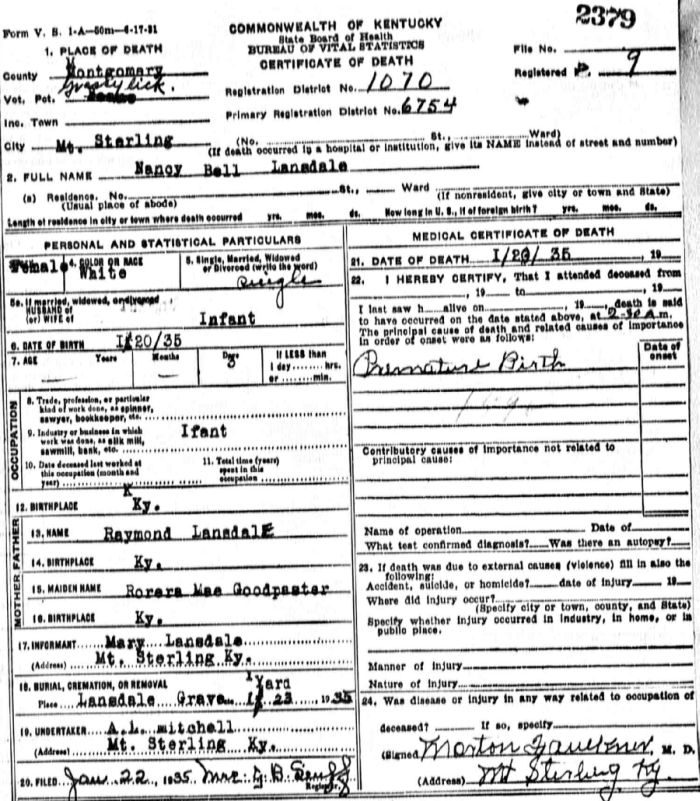 2379
Form V. S. 1-A—50m—6-17-31
COMMONWEALTH OF KENTUCKY
State Board of Health
BUREAU OF VITAL STATISTICS
CERTIFICATE OF DEATH
File No.
Registered 9
1. PLACE OF DEATH
County Montgomery
Vot. Pct. Grassy lick.
Inc. Town
City Mt. Sterling
Registration District No. 1070
Primary Registration District No. 6754
(No. St., Ward)
(If death occurred in a hospital or institution, give its NAME instead of street and number)
2. FULL NAME Nancy Bell Lansdale
(a) Residence. No. St., Ward
(Usual place of abode) (If nonresident, give city or town and State)
Length of residence in city or town where death occurred yrs. mos. ds. How long in U. S., if of foreign birth? yrs. mos. ds.
PERSONAL AND STATISTICAL PARTICULARS
Female 4. COLOR OR RACE White
5. Single, Married, Widowed or Divorced (write the word) Single
5a. If married, widowed, or divorced
HUSBAND OF
(or) WIFE of Infant
6. DATE OF BIRTH 1/20/35
7. AGE Years Months Days 3 If LESS than
1 day hrs.
or min.
OCCUPATION
8. Trade, profession, or particular
kind of work done, as spinner,
sawyer, bookkeeper, etc.
9. Industry or business in which
work was done, as silk mill,
sawmill, bank, etc. Ifant
10. Date deceased last worked at
this occupation (month and
year)
11. Total time (years)
spent in this
occupation
12. BIRTHPLACE Ky.
FATHER
13. NAME Raymond LansdalE
14. BIRTHPLACE Ky.
MOTHER
15. MAIDEN NAME Rorera Mae Goodpaster
16. BIRTHPLACE Ky.
17. INFORMANT Mary Lansdale
(Address) Mt. Sterling Ky.
18. BURIAL, CREMATION, OR REMOVAL
Place Lansdale Grave Yard 1/23 1935
19. UNDERTAKER A.L. mitchell
(Address) Mt. Sterling Ky.
20. FILED Jan 22, 1935 Mrs. G. B. Senff
Registrar.
MEDICAL CERTIFICATE OF DEATH
21. DATE OF DEATH 1/23/35 , 19
22. I HEREBY CERTIFY, That I attended deceased from
, 19 to , 19
I last saw h alive on , 19 , death is said
to have occurred on the date stated above, at 2-30 A.m.
The principal cause of death and related causes of importance
in order of onset were as follows:
Date of
onset
Premature Birth
Contributory causes of importance not related to
principal cause:
Name of operation Date of
What test confirmed diagnosis? Was there an autopsy?
23. If death was due to external causes (violence) fill in also the
following:
Accident, suicide, or homicide? date of injury 19
Where did injury occur?
(Specify city or town, county, and State)
Specify whether injury occurred in industry, in home, or in
public place.
Manner of injury
Nature of injury
24. Was disease or injury in any way related to occupation of
deceased? If so, specify
(Signed Morton Faulkner, M. D.
(Address) Mt Sterling Ky.